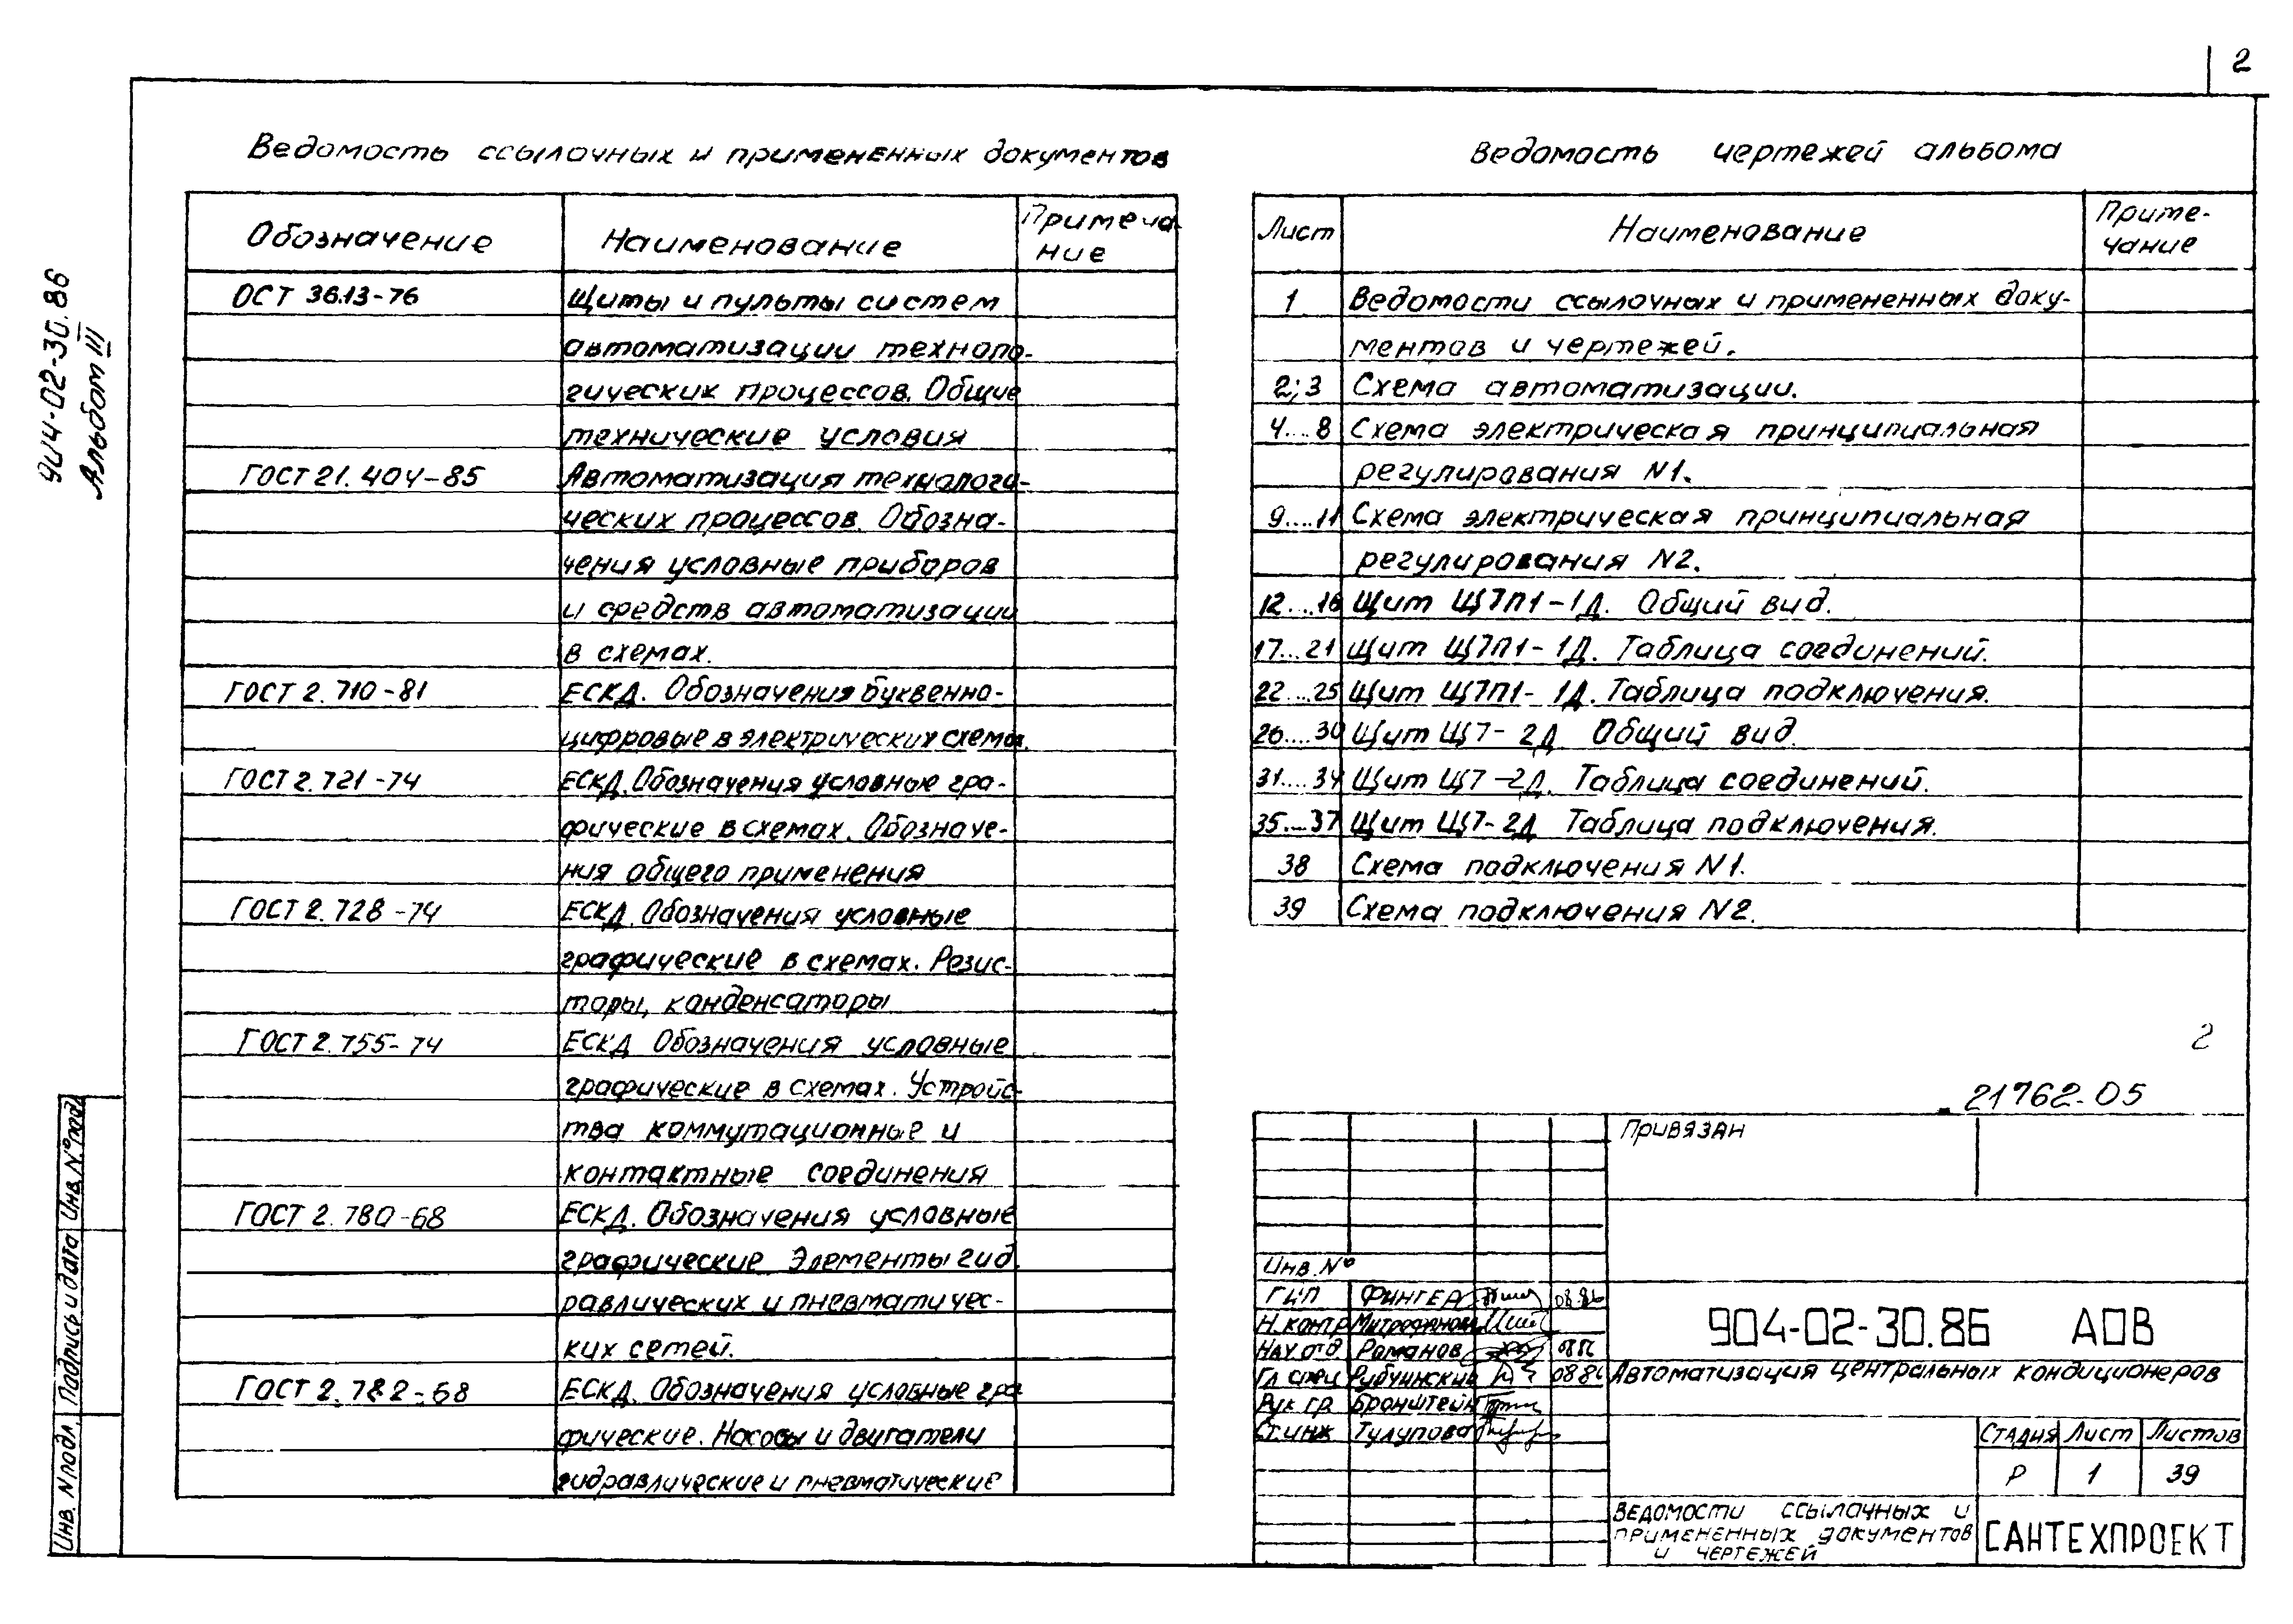 2
904-02-30.86
Альбом III
Ведомость ссылочных и примененных документов
Обозначение Наименование Примеча-
ние
ОСТ 36.13-76 Щиты и пульты систем
автоматизации техноло-
гических процессов. Общие
технические условия
ГОСТ 21.404-85 Автоматизация технологи-
ческих процессов. Обозна-
чения условные приборов
и средств автоматизации
в схемах.
ГОСТ 2.710-81 ЕСКД. Обозначения буквенно-
цифровые в электрических схемах.
ГОСТ 2.721-74 ЕСКД. Обозначения условные гра-
фические в схемах. Обозначе-
ния общего применения
ГОСТ 2.728-74 ЕСКД. Обозначения условные
графические в схемах. Резис-
торы, конденсаторы
ГОСТ 2.755-74 ЕСКД Обозначения условные
графические в схемах. Устройс-
тва коммутационные и
контактные соединения
ГОСТ 2.780-68 ЕСКД. Обозначения условные
графические Элементы гид
равлических и пневматичес-
ких сетей.
ГОСТ 2.782-68 ЕСКД. Обозначения условные гра
фические. Насосы и двигатели
гидравлические и пневматические
Ведомость чертежей альбома
Лист Наименование Приме-
чание
1 Ведомости ссылочных и примененных доку-
ментов и чертежей.
2;3 Схема автоматизации.
4...8 Схема электрическая принципиальная
регулирования N1.
9....11 Схема электрическая принципиальная
регулирования N2.
12...16 Щит Щ7П1-1Д. Общий вид.
17...21 Щит Щ7П1-1Д. Таблица соединений.
22...25 Щит Щ7П1-1Д. Таблица подключения.
26....30 Щит Щ7-2Д Общий вид.
31....34 Щит Щ7-2Д. Таблица соединений.
35...37 Щит Щ7-2Д Таблица подключения.
38 Схема подключения N1.
39 Схема подключения N2.
2
21762-05
Привязан
Инв. №
ГИП Фингер 08.86
Н.контр Митрофанова
Нач.отд. Романов 08.86
Гл.спец Рубчинский 08.86
Рук.гр. Бронштейн
Ст.инж Тулупова
904-02-30.86 АОВ
Автоматизация центральных кондиционеров
Стадия Лист Листов
Р 1 39
Ведомости ссылочных и
примененных документов
и чертежей
САНТЕХПРОЕКТ
Инв. N подл. Подпись и дата Инв. N° подл